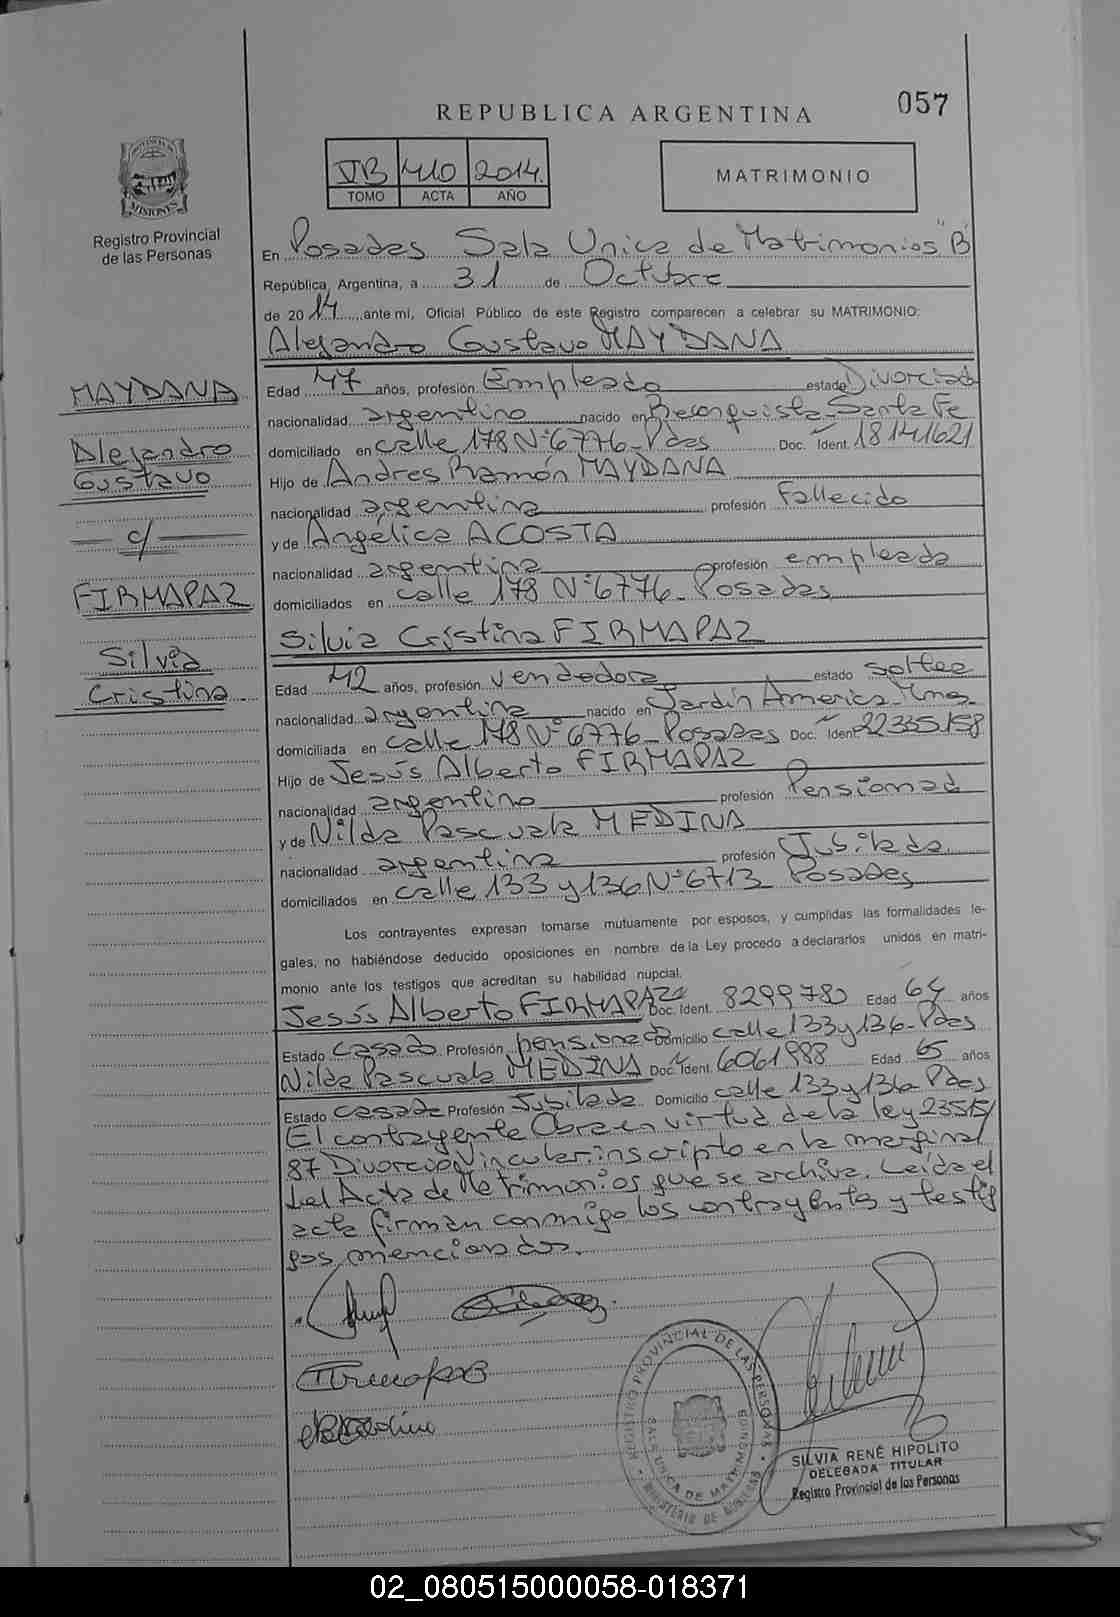 REPUBLICA ARGENTINA
057
VB 410 2014.
TOMO ACTA AÑO
MATRIMONIO
PROVINCIA DE
MISIONES
Registro Provincial
de las Personas
En Posadas Sala Unica de Matrimonios "B"
República Argentina, a 31 de Octubre
de 2014 ante mí, Oficial Público de este Registro comparecen a celebrar su MATRIMONIO:
Alejandro Gustavo MAYDANA
MAYDANA
Alejandro
Gustavo
c/
FIRMAPAZ
Silvia
Cristina
Edad 47 años, profesión Empleado estado Divorciado
nacionalidad argentino nacido en Reconquista-Santa Fe
domiciliado en calle 178 N°6776-Pdas Doc. Ident. 18141621
Hijo de Andres Ramón MAYDANA
nacionalidad argentina profesión Fallecido
y de Angélica ACOSTA
nacionalidad argentina profesión empleada
domiciliados en calle 178 N°6776-Posadas
Silvia Cristina FIRMAPAZ
Edad 42 años, profesión vendedora estado soltera
nacionalidad argentina nacido en Jardín America-Mnes-
domiciliada en calle 178 N°6776-Posadas Doc. Ident. 22335158
Hijo de Jesús Alberto FIRMAPAZ
nacionalidad argentino profesión Pensionad
y de Nilda Pascuala MEDINA
nacionalidad argentina profesión Jubilada
domiciliados en calle 133 y 136 N°6713 Posadas
Los contrayentes expresan tomarse mutuamente por esposos, y cumplidas las formalidades le-
gales, no habiéndose deducido oposiciones en nombre de la Ley procedo a declararlos unidos en matri-
monio ante los testigos que acreditan su habilidad nupcial.
Jesús Alberto FIRMAPAZ Doc. Ident. 8299780 Edad 64 años
Estado casado Profesión pensionado Domicilio calle 133 y 136-Pdas
Nilda Pascuala MEDINA Doc. Ident. 6061988 Edad 65 años
Estado casada Profesión Jubilada Domicilio calle 133 y 136 Pdas
El contrayente Obra en virtud de la ley 23515/
87 Divorcio Vincular inscripto en la marginal
del Acta de Matrimonios que se archiva. Leída el
acta firman conmigo los contrayentes y testi
gos mencionados.
REGISTRO PROVINCIAL DE LAS PERSONAS
SALA UNICA DE MATRIMONIOS
MINISTERIO DE GOBIERNO
SILVIA RENÉ HIPOLITO
DELEGADA TITULAR
Registro Provincial de las Personas
02_080515000058-018371